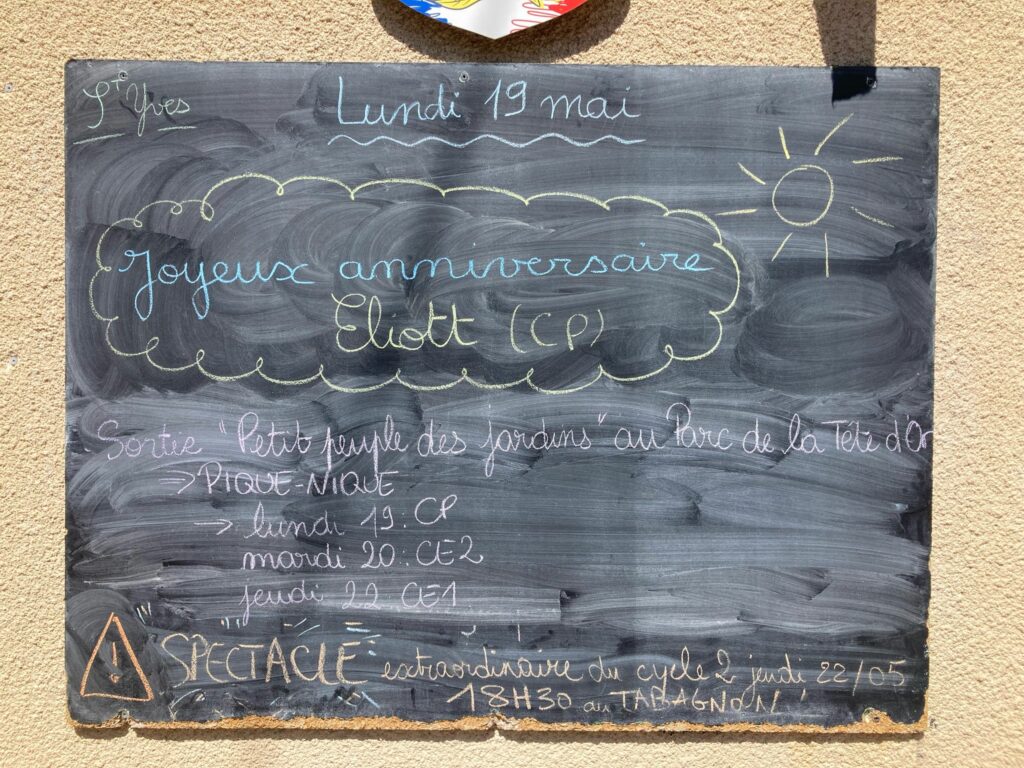 St Yves
Lundi 19 mai
Joyeux anniversaire
Eliott (CP)
Sortie "Petit peuple des jardins" au Parc de la Tête d'Or
=> PIQUE-NIQUE
-> lundi 19 : CP
mardi 20 : CE2
jeudi 22 : CE1
! SPECTACLE extraordinaire du cycle 2 jeudi 22/05
18H30 au TABAGNON !